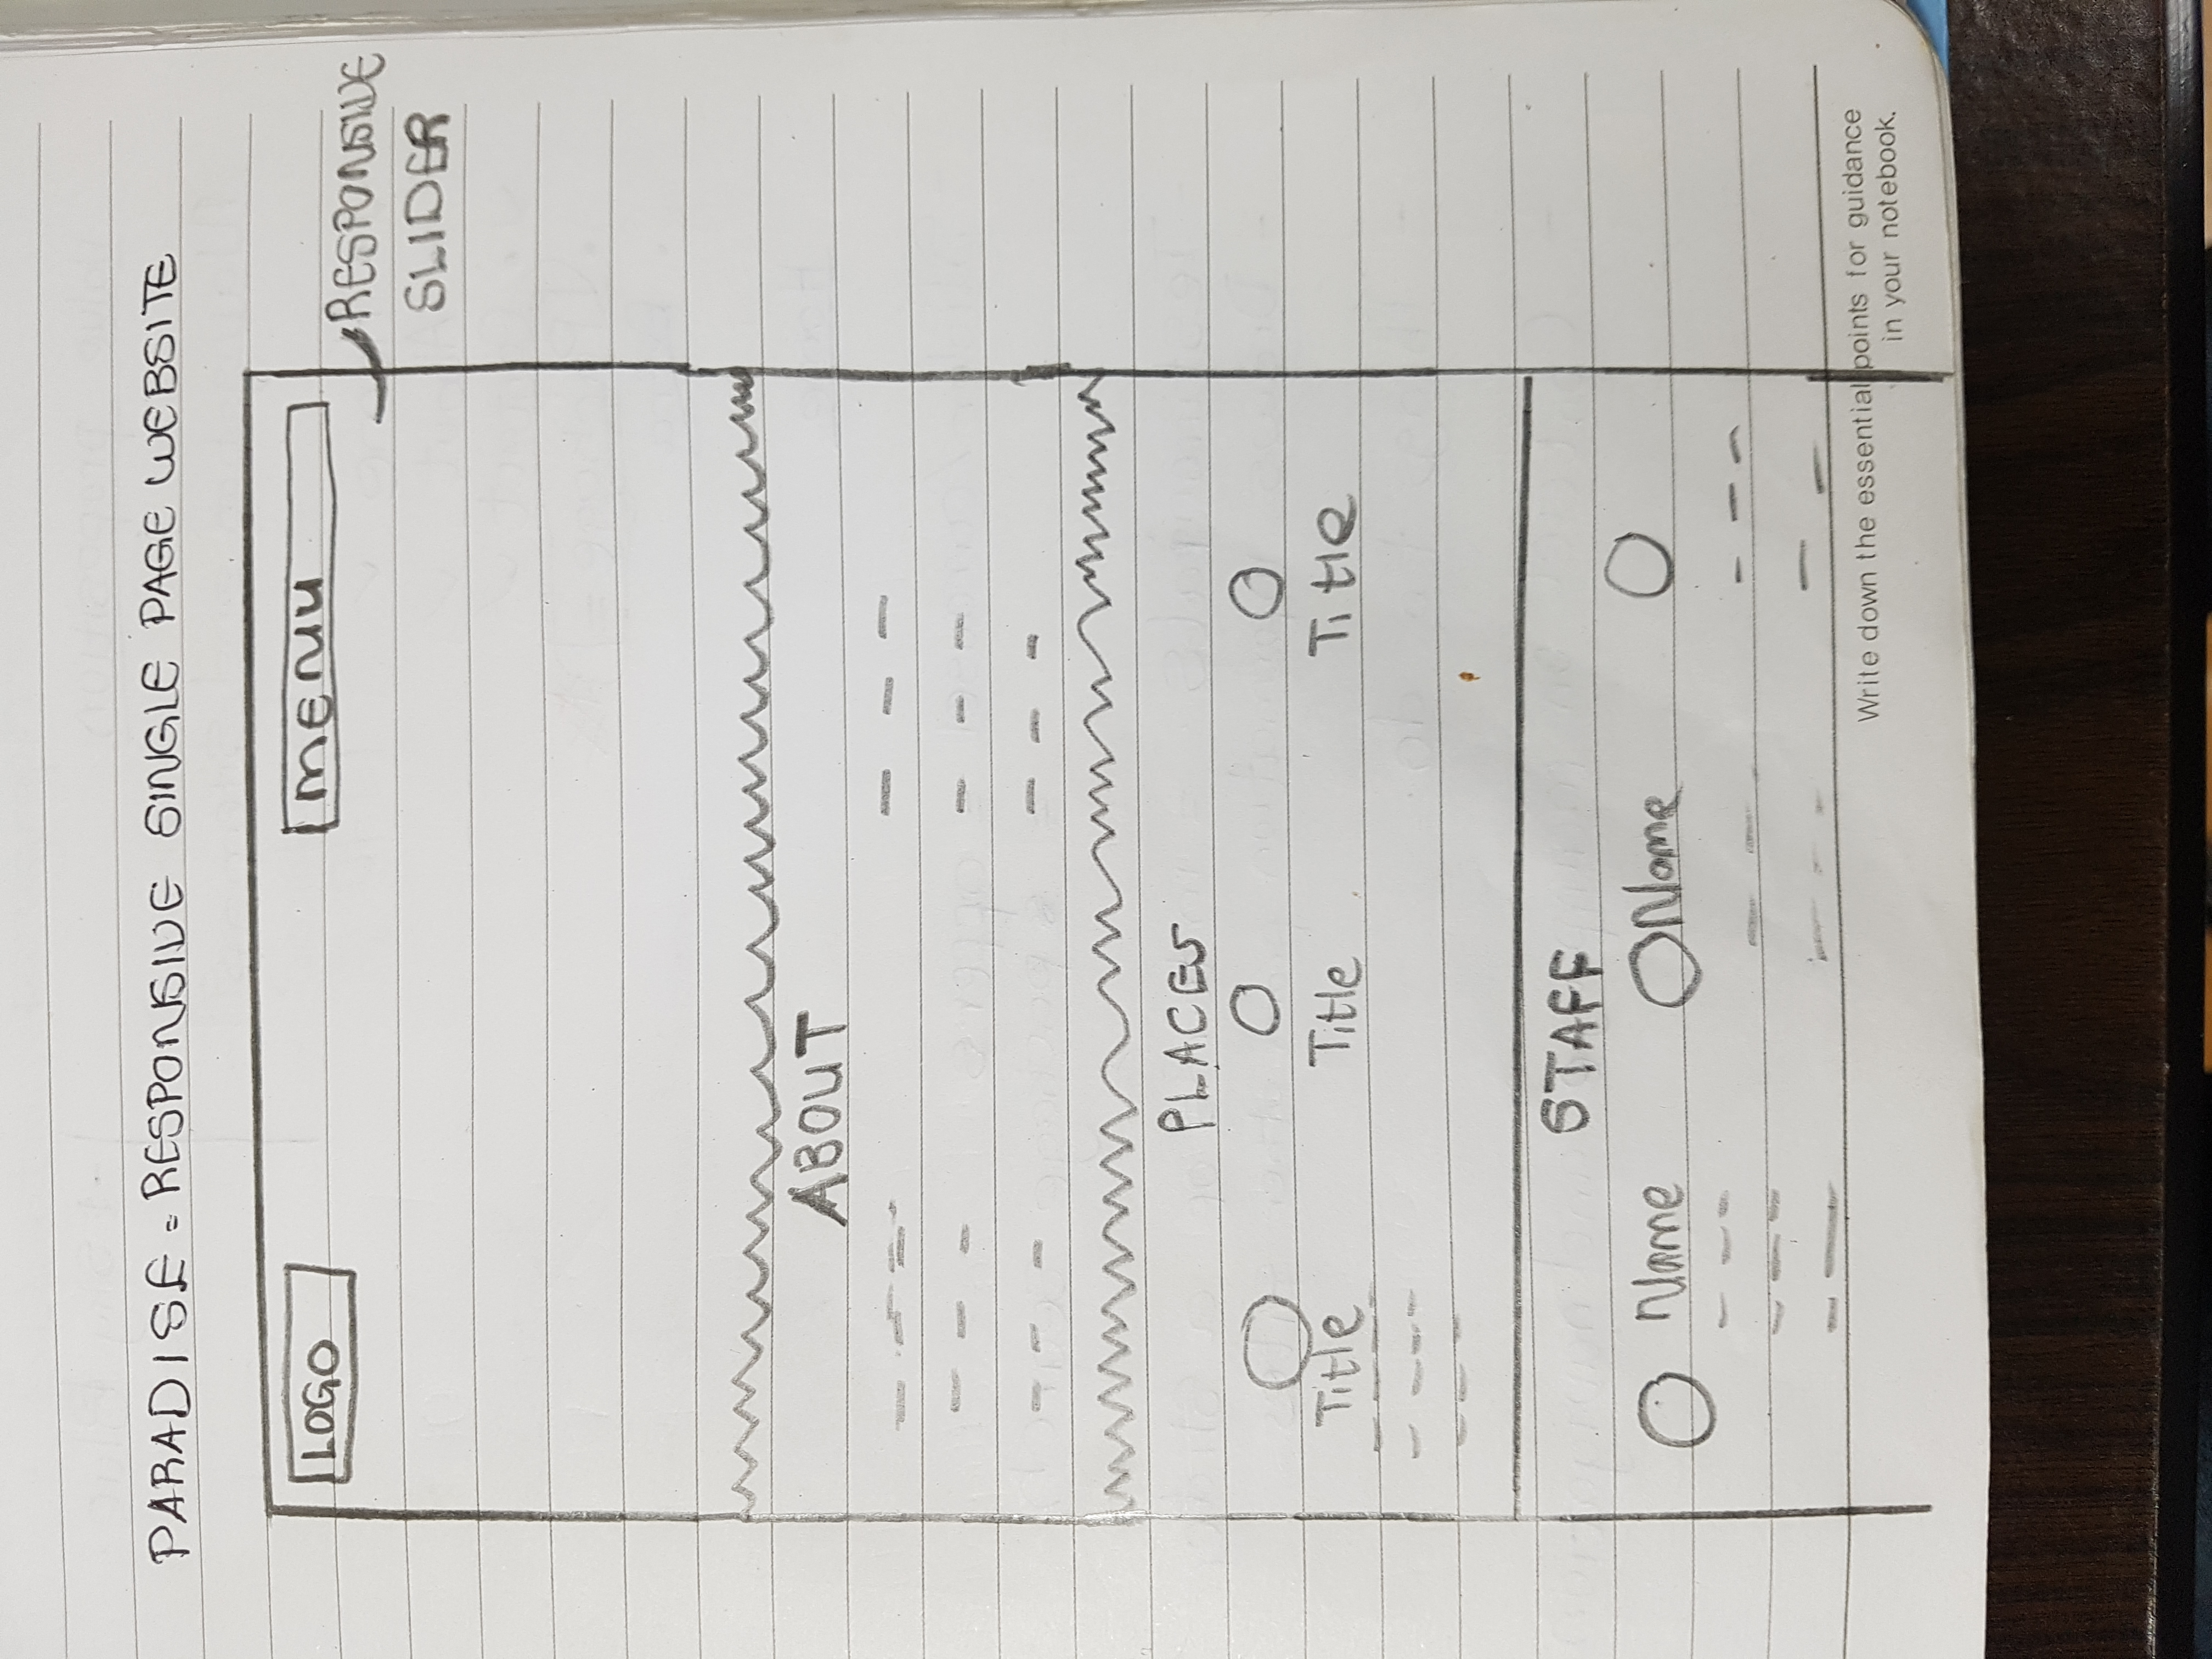 PARADISE = RESPONSIVE SINGLE PAGE WEBSITE
LOGO
MENU
RESPONSIVE
SLIDER
ABOUT
PLACES
Title Title Title
STAFF
Name Name
Write down the essential points for guidance
in your notebook.